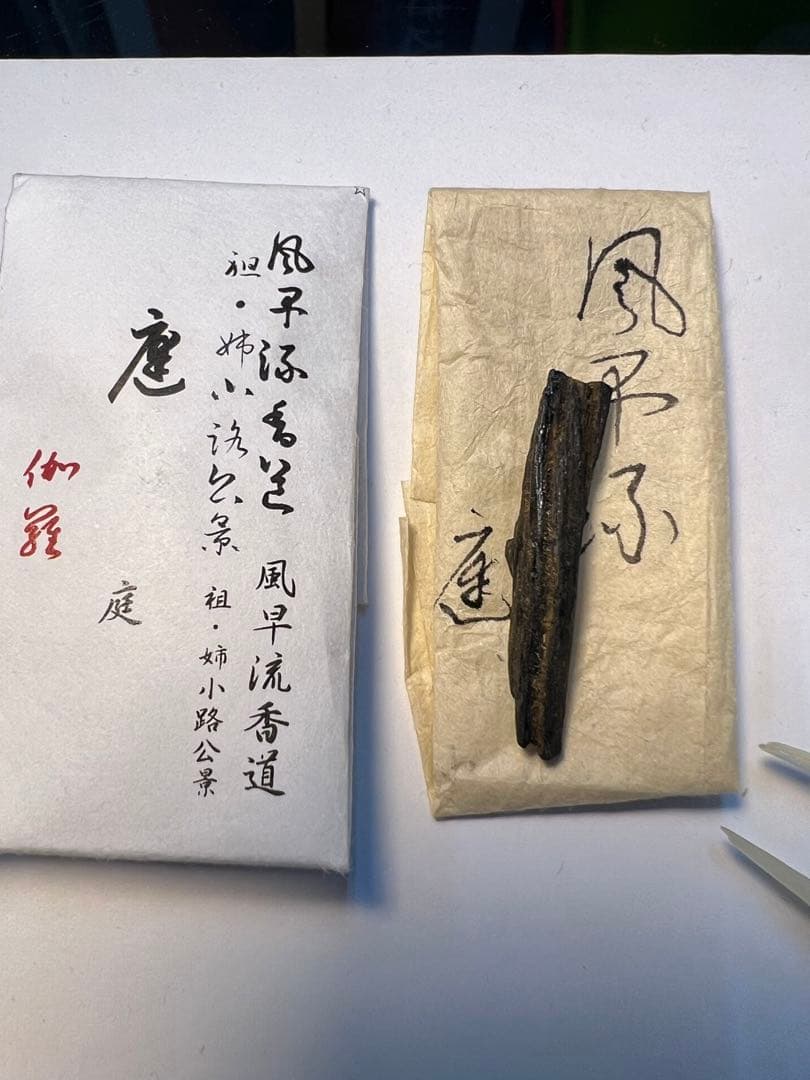 風早流香道 風早流香道
祖・姉小路公景 祖・姉小路公景
庭 庭
伽羅
風早流
庭